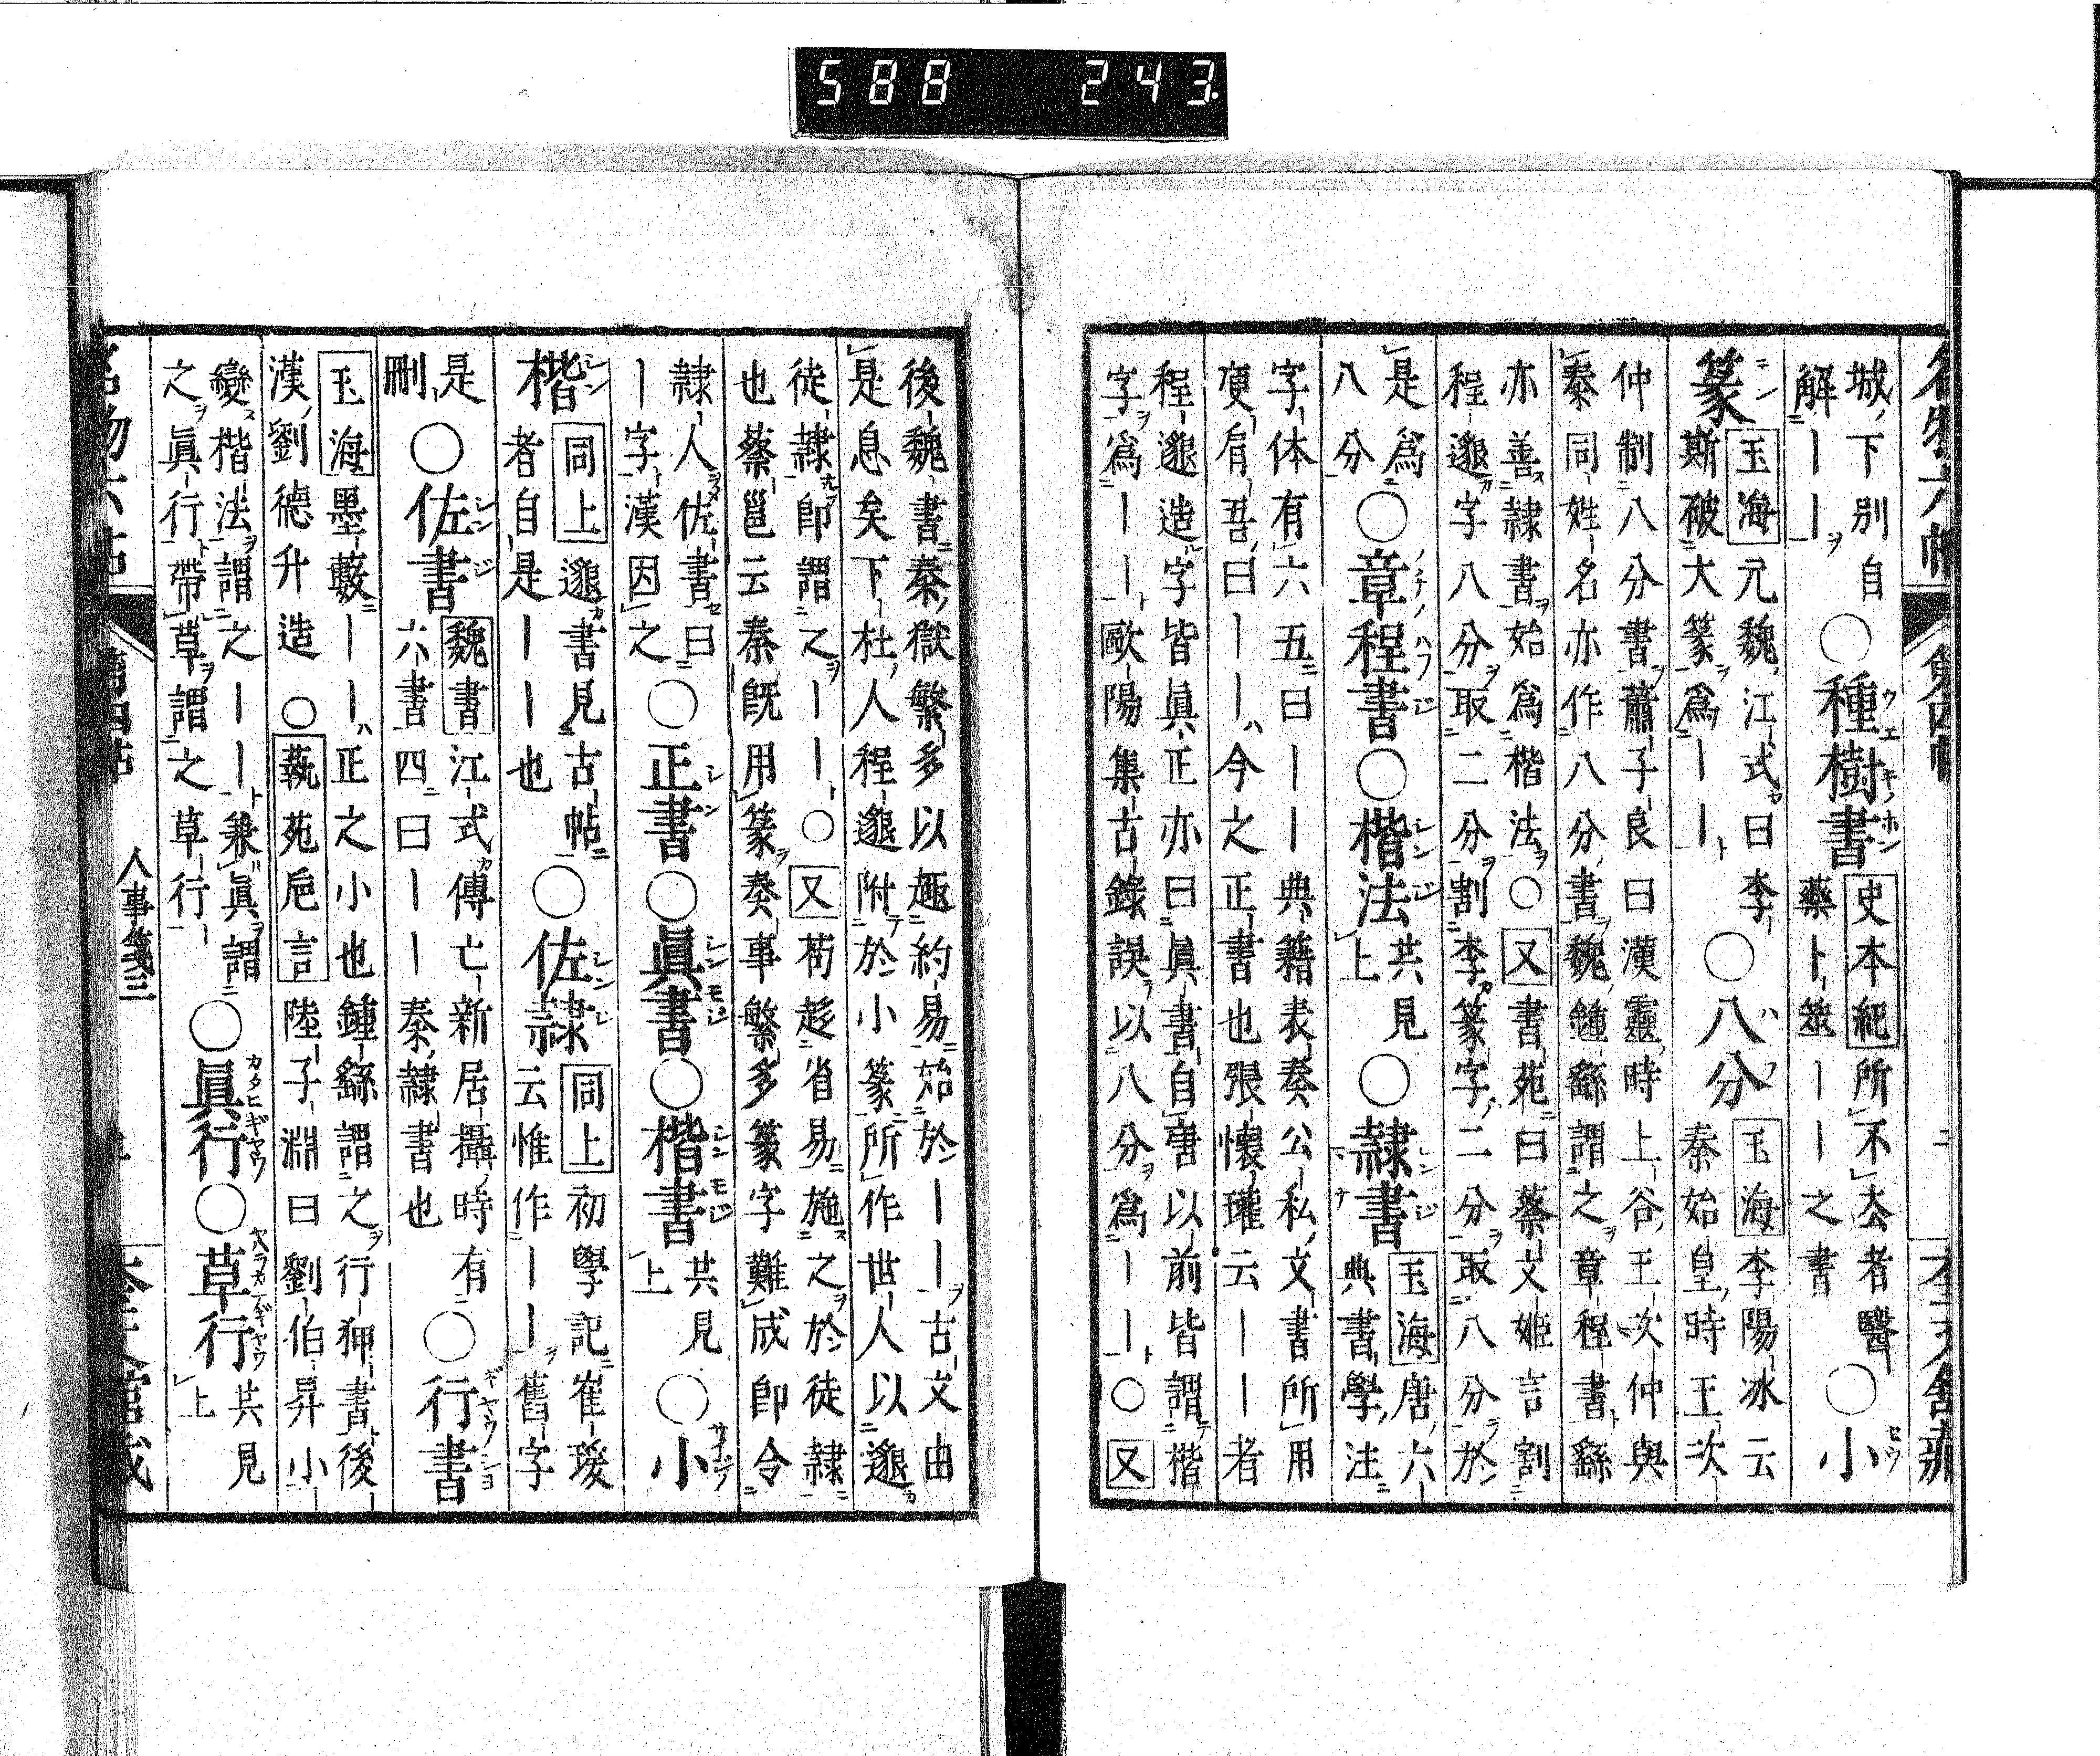 588 243
城下別自
解｜｜
○種樹書
史本紀所不去者醫
藥卜筮｜｜之書
○小
篆
玉海元魏江式曰李
斯破大篆爲｜｜
○八分
玉海李陽冰云
秦始皇時王次
仲制八分書蕭子良曰漢靈時上谷王次仲與
秦同姓名亦作八分書魏鍾繇謂之章程書繇
亦善隸書始爲楷法○又書苑曰蔡文姬言割
程邈字八分取二分割李篆字二分取八分於
是爲
八分
○章程書○楷法
共見
上
○隸書
玉海唐六
典書學注
字体有六五曰｜｜典籍表奏公私文書所用
庾肩吾曰｜｜今之正書也張懷瓘云｜｜者
程邈造字皆眞正亦曰眞書自唐以前皆謂楷
字爲｜｜歐陽集古錄誤以八分爲｜｜○又
後魏書秦獄繁多以趣約易始於｜｜古文由
是息矣下杜人程邈附於小篆所作世人以邈
徒隸卽謂之｜｜○又苟趍省易施之於徒隸
也蔡邕云秦旣用篆奏事繁多篆字難成卽令
隸人佐書曰
｜字漢因之
○正書○眞書○楷書
共見
上
○小
楷
同上邈書見古帖
者自是｜｜也
○佐隸
同上初學記崔瑗
云惟作｜｜舊字
是
刪
○佐書
魏書江式傳亡新居攝時有
六書四曰｜｜秦隸書也
○行書
玉海墨藪｜｜正之小也鍾繇謂之行狎書後
漢劉德升造○藝苑巵言陸子淵曰劉伯昇小
變楷法謂之｜｜兼眞謂
之眞行帶草謂之草行
○眞行○草行
共見
上
名物六帖 第四帖 人事箋三